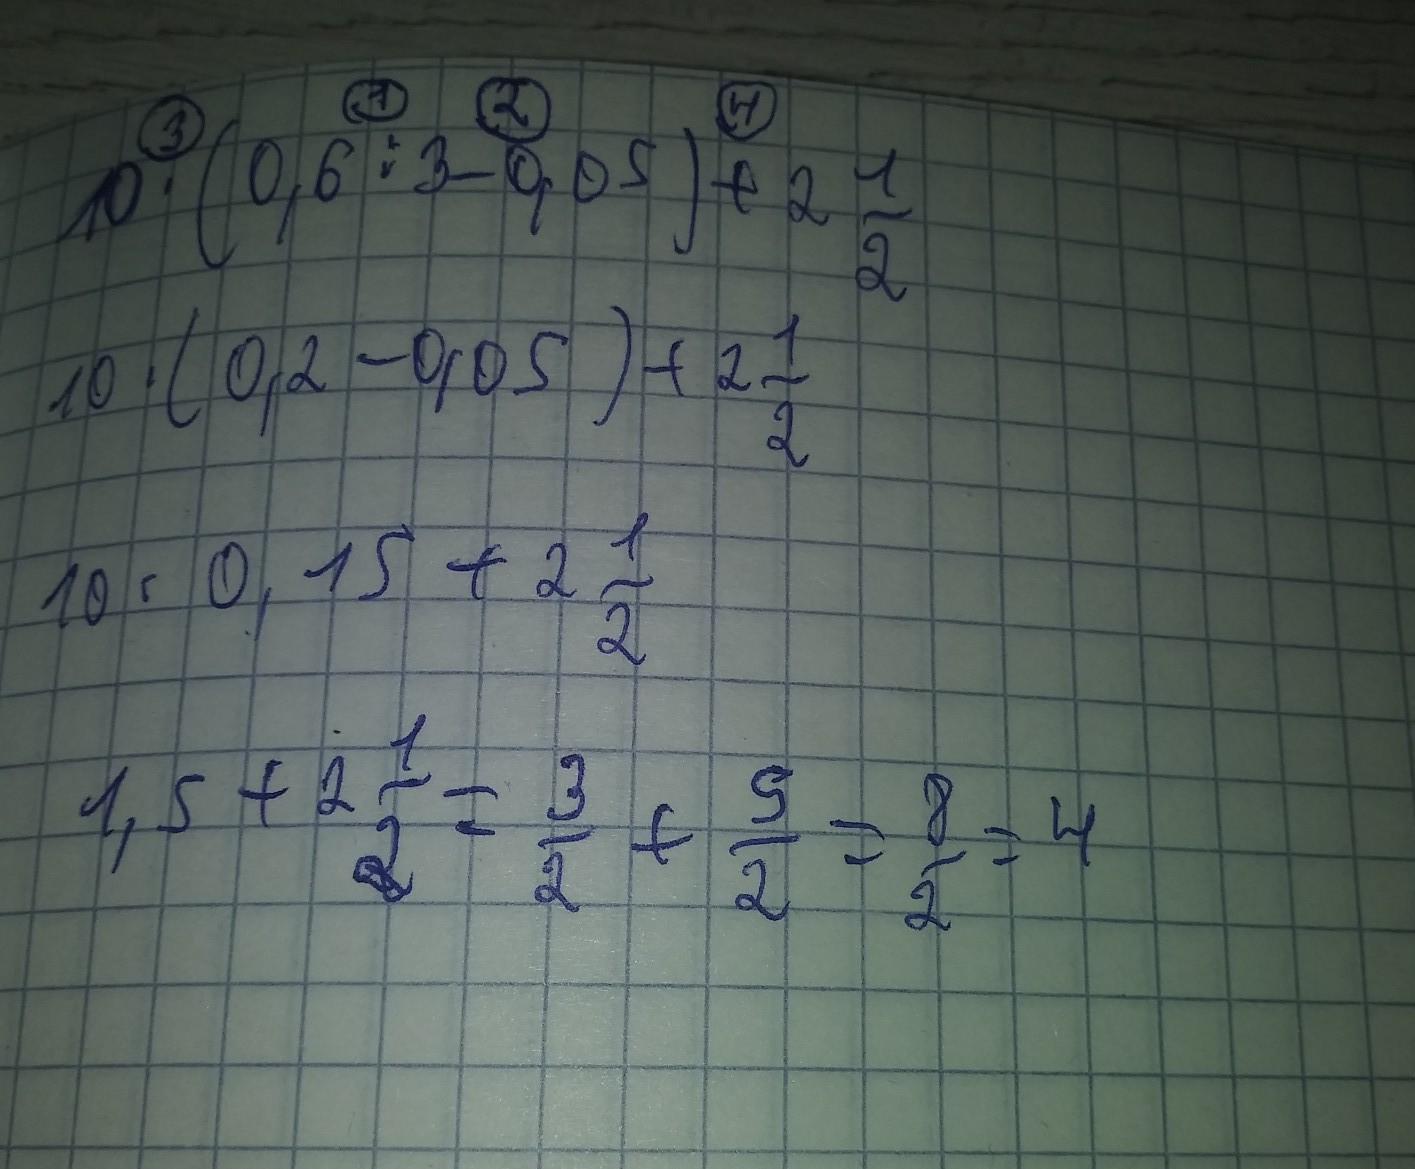 ③ ① ② ④
10 · (0,6 : 3 - 0,05) + 2 1/2
10 · (0,2 - 0,05) + 2 1/2
10 · 0,15 + 2 1/2
1,5 + 2 1/2 = 3/2 + 5/2 = 8/2 = 4